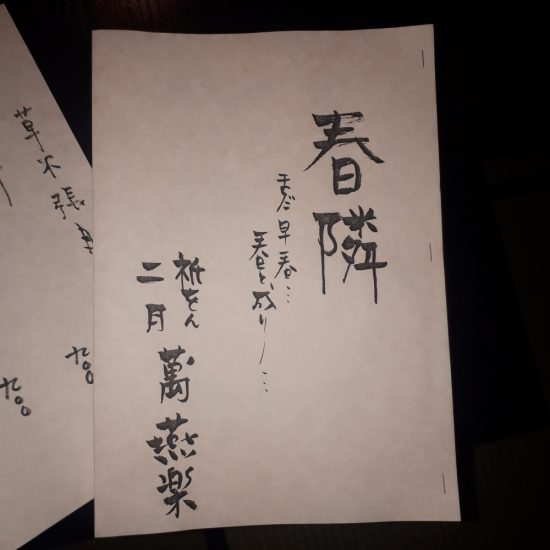 春隣
まだ早春…
春と成り…
祇をん
二月
萬燕楽
九〇〇
九〇〇